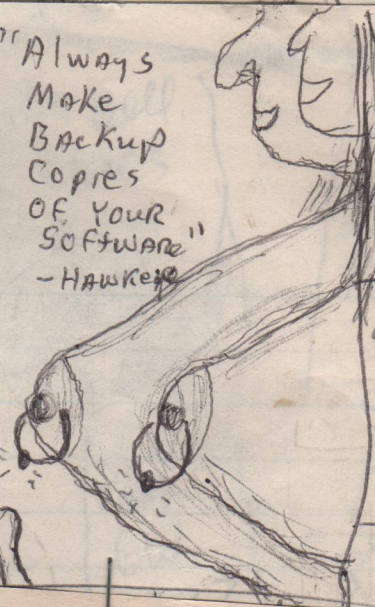 "Always
Make
Backup
Copies
OF YOUR
SOFTWARE"
- HAWKEYE